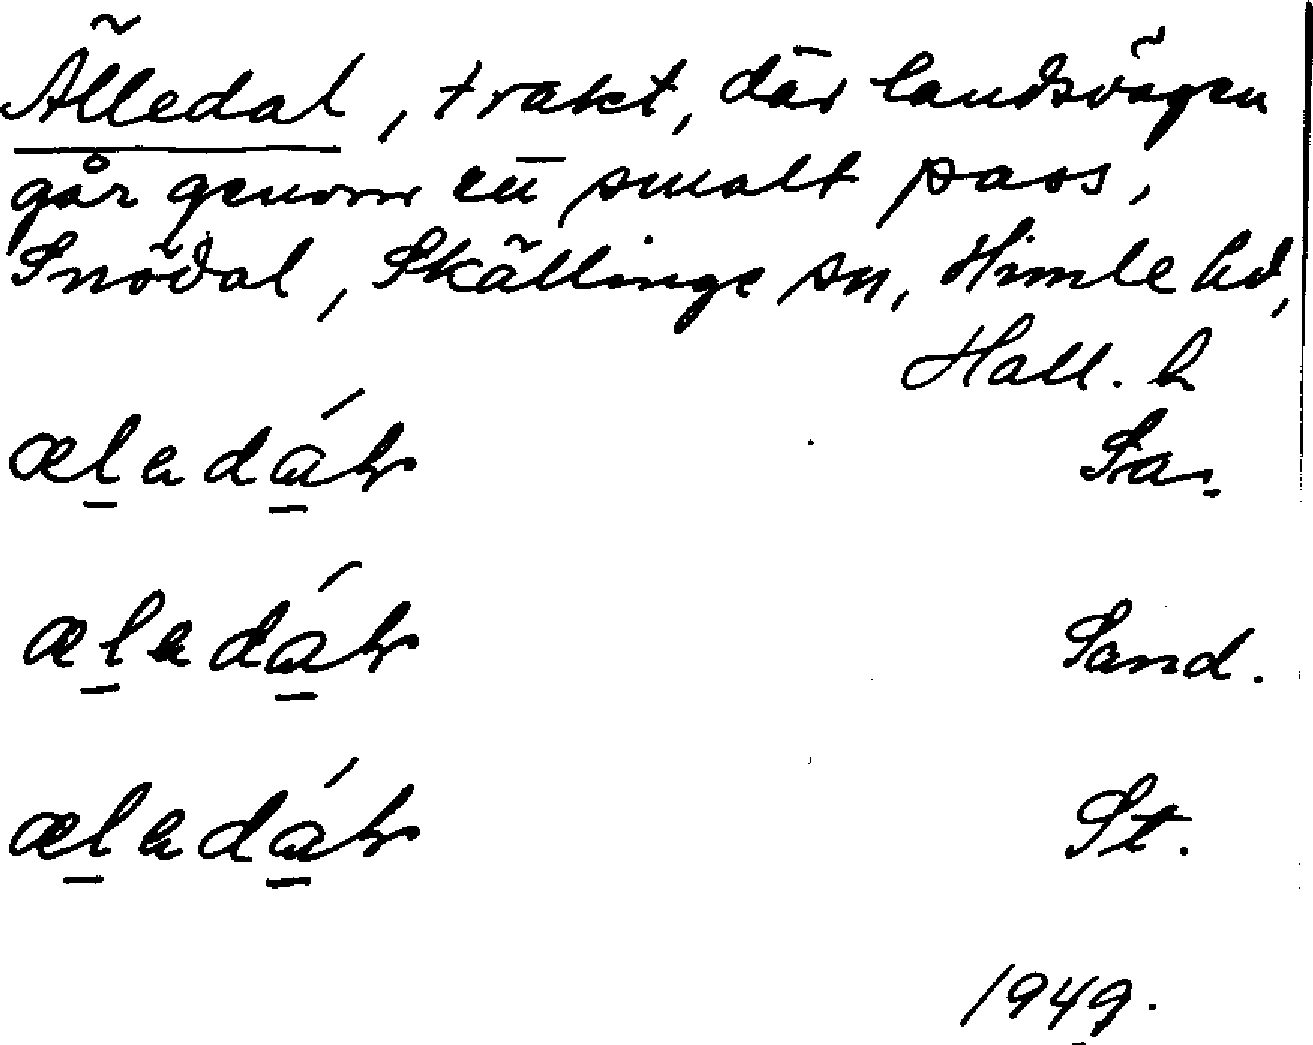 Älledal, trakt, där landsvägen
går genom ett smalt pass,
Snödal, Skällinge sn, Himle hd,
Hall. l.
æl̲adá̲l Sa.
æl̲adá̲l Sand.
æl̲adá̲l St.
1949.